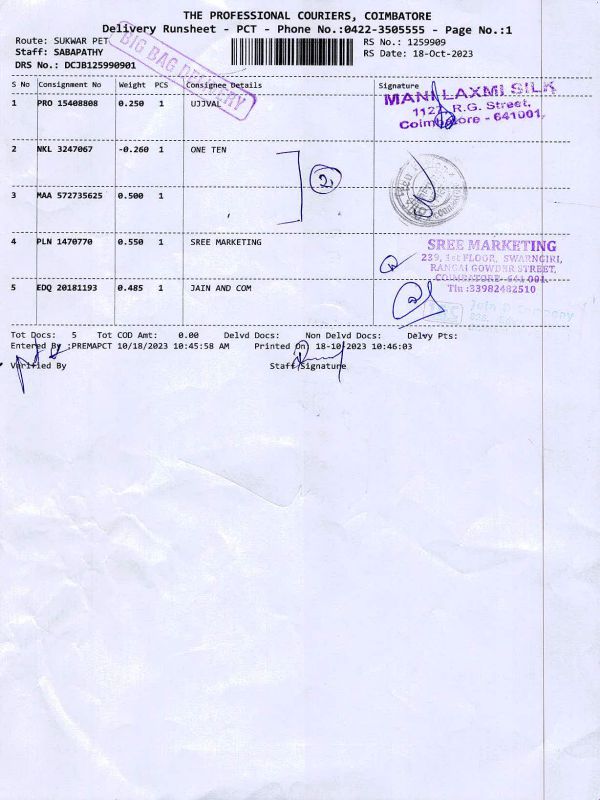 THE PROFESSIONAL COURIERS, COIMBATORE
Delivery Runsheet - PCT - Phone No.:0422-3505555 - Page No.:1
Route: SUKWAR PET
RS No.: 1259909
Staff: SABAPATHY
RS Date: 18-Oct-2023
DRS No.: DCJB125990901
BIG BAG DELIVERY
S No Consignment No Weight PCS Consignee Details Signature
1 PRO 15408808 0.250 1 UJJVAL
MANI LAXMI SILK
1127, R.G. Street,
Coimbatore - 641001.
2 NKL 3247067 -0.260 1 ONE TEN
2
3 MAA 572735625 0.500 1
4 PLN 1470770 0.550 1 SREE MARKETING
SREE MARKETING
239, 1st FLOOR, SWARNGIRI,
RANGAI GOWDER STREET,
COIMBATORE- 641 001.
Tin :33982482510
5 EDQ 20181193 0.485 1 JAIN AND COM
Jain & Company
Tot Docs: 5 Tot COD Amt: 0.00 Delvd Docs: Non Delvd Docs: Delvy Pts:
Entered By :PREMAPCT 10/18/2023 10:45:58 AM Printed On 18-10-2023 10:46:03
Verified By Staff Signature